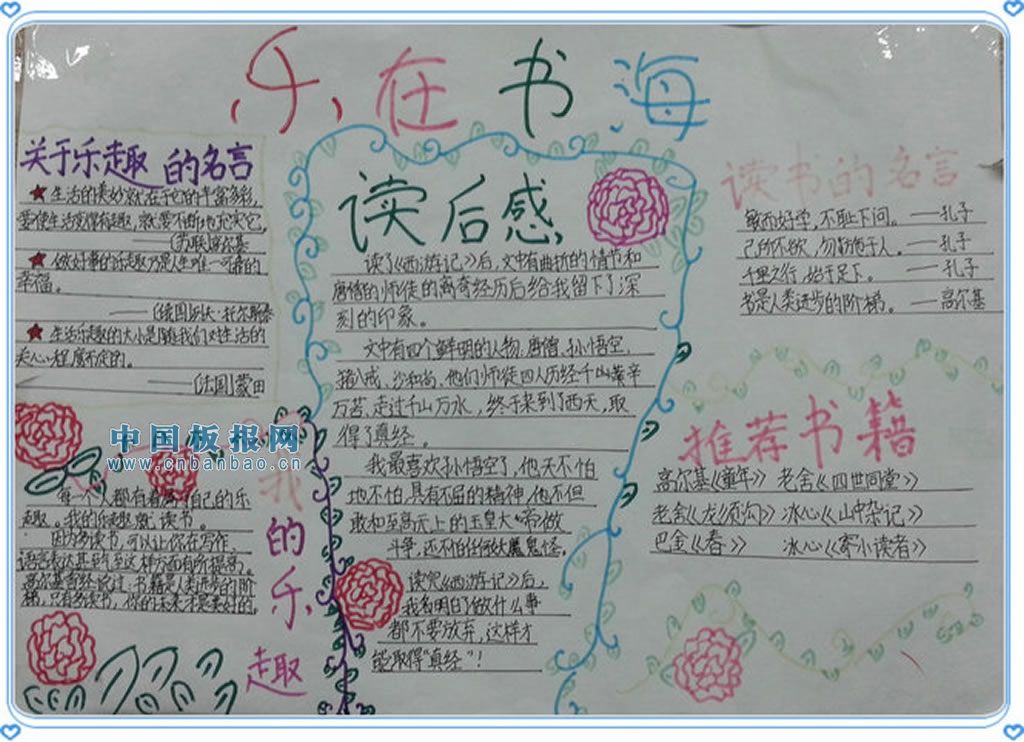 乐在书海
关于乐趣的名言
生活的美妙就在于它的丰富多彩,
要使生活变得有趣,就要不断地充实它。
——(苏联)高尔基
做好事的乐趣乃是人生唯一可靠的
幸福。
——(法国)列夫·托尔斯泰
生活乐趣的大小是随我们对生活的
关心程度而定的。
——(法国)蒙田
中国板报网
www.cnbanbao.cn
我的乐趣
每一个人都有着属于自己的乐
趣。我的乐趣就读书。
因为多读书,可以让你在写作
语言表达甚至
高尔基曾经说过:书籍是人类进步的阶
梯,只有多读书,你的未来才是美好的,
读后感
读了《西游记》后,文中有曲折的情节和
唐僧的师徒的离奇经历后给我留下了深
刻的印象。
文中有四个鲜明的人物,唐僧,孙悟空,
猪八戒,沙和尚,他们师徒四人历经千山
万苦,走过千山万水,终于来到了西天,取
得了真经。
我最喜欢孙悟空了,他天不怕
地不怕,具有不屈的精神,他不但
敢和至高无上的玉皇大帝做
斗争,还不怕任何妖魔鬼怪。
读完《西游记》后,
我名明白了做什么事
都不要放弃,这样才
能取得“真经”!
读书的名言
敏而好学,不耻下问。——孔子
己所不欲,勿施于人。——孔子
千里之行,始于足下。——孔子
书是人类进步的阶梯。——高尔基
推荐书籍
高尔基《童年》 老舍《四世同堂》
老舍《龙须沟》 冰心《山中杂记》
巴金《春》 冰心《寄小读者》